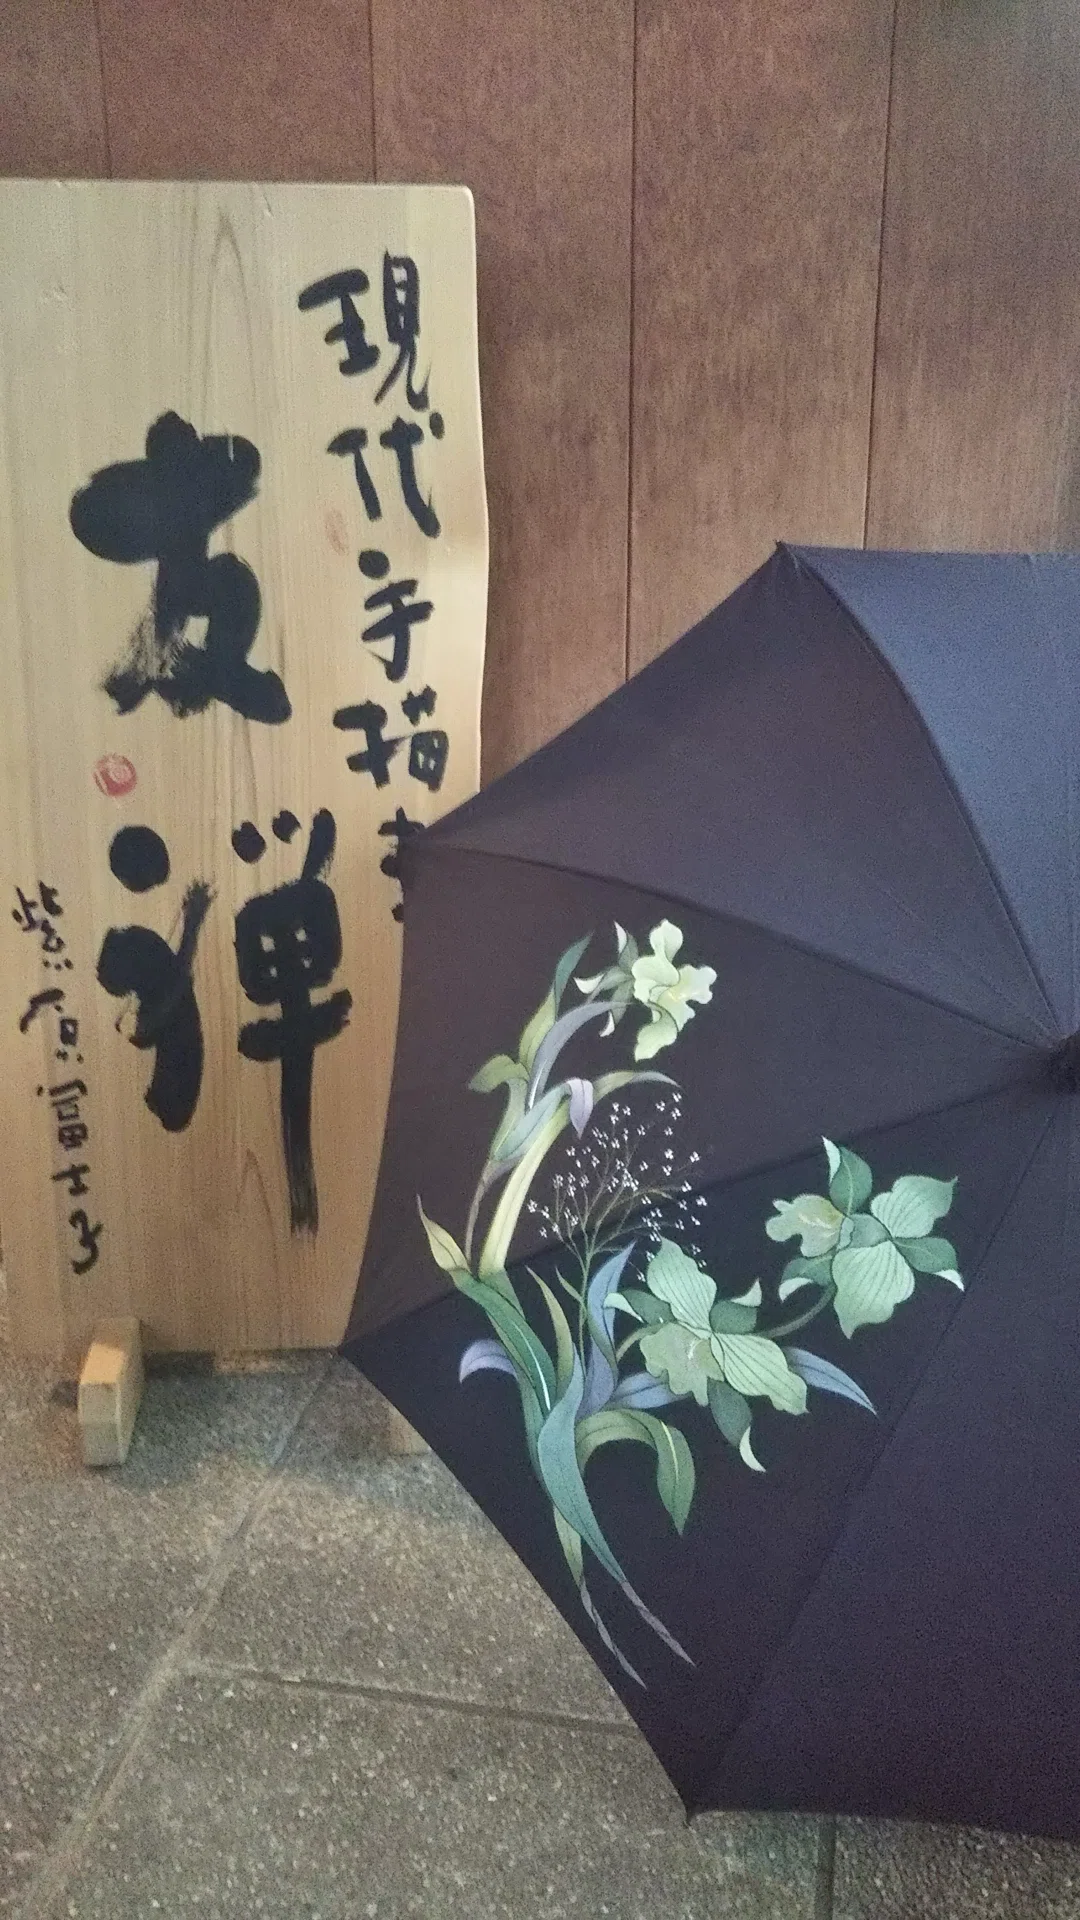 現代手描
友禅
紫原富士子